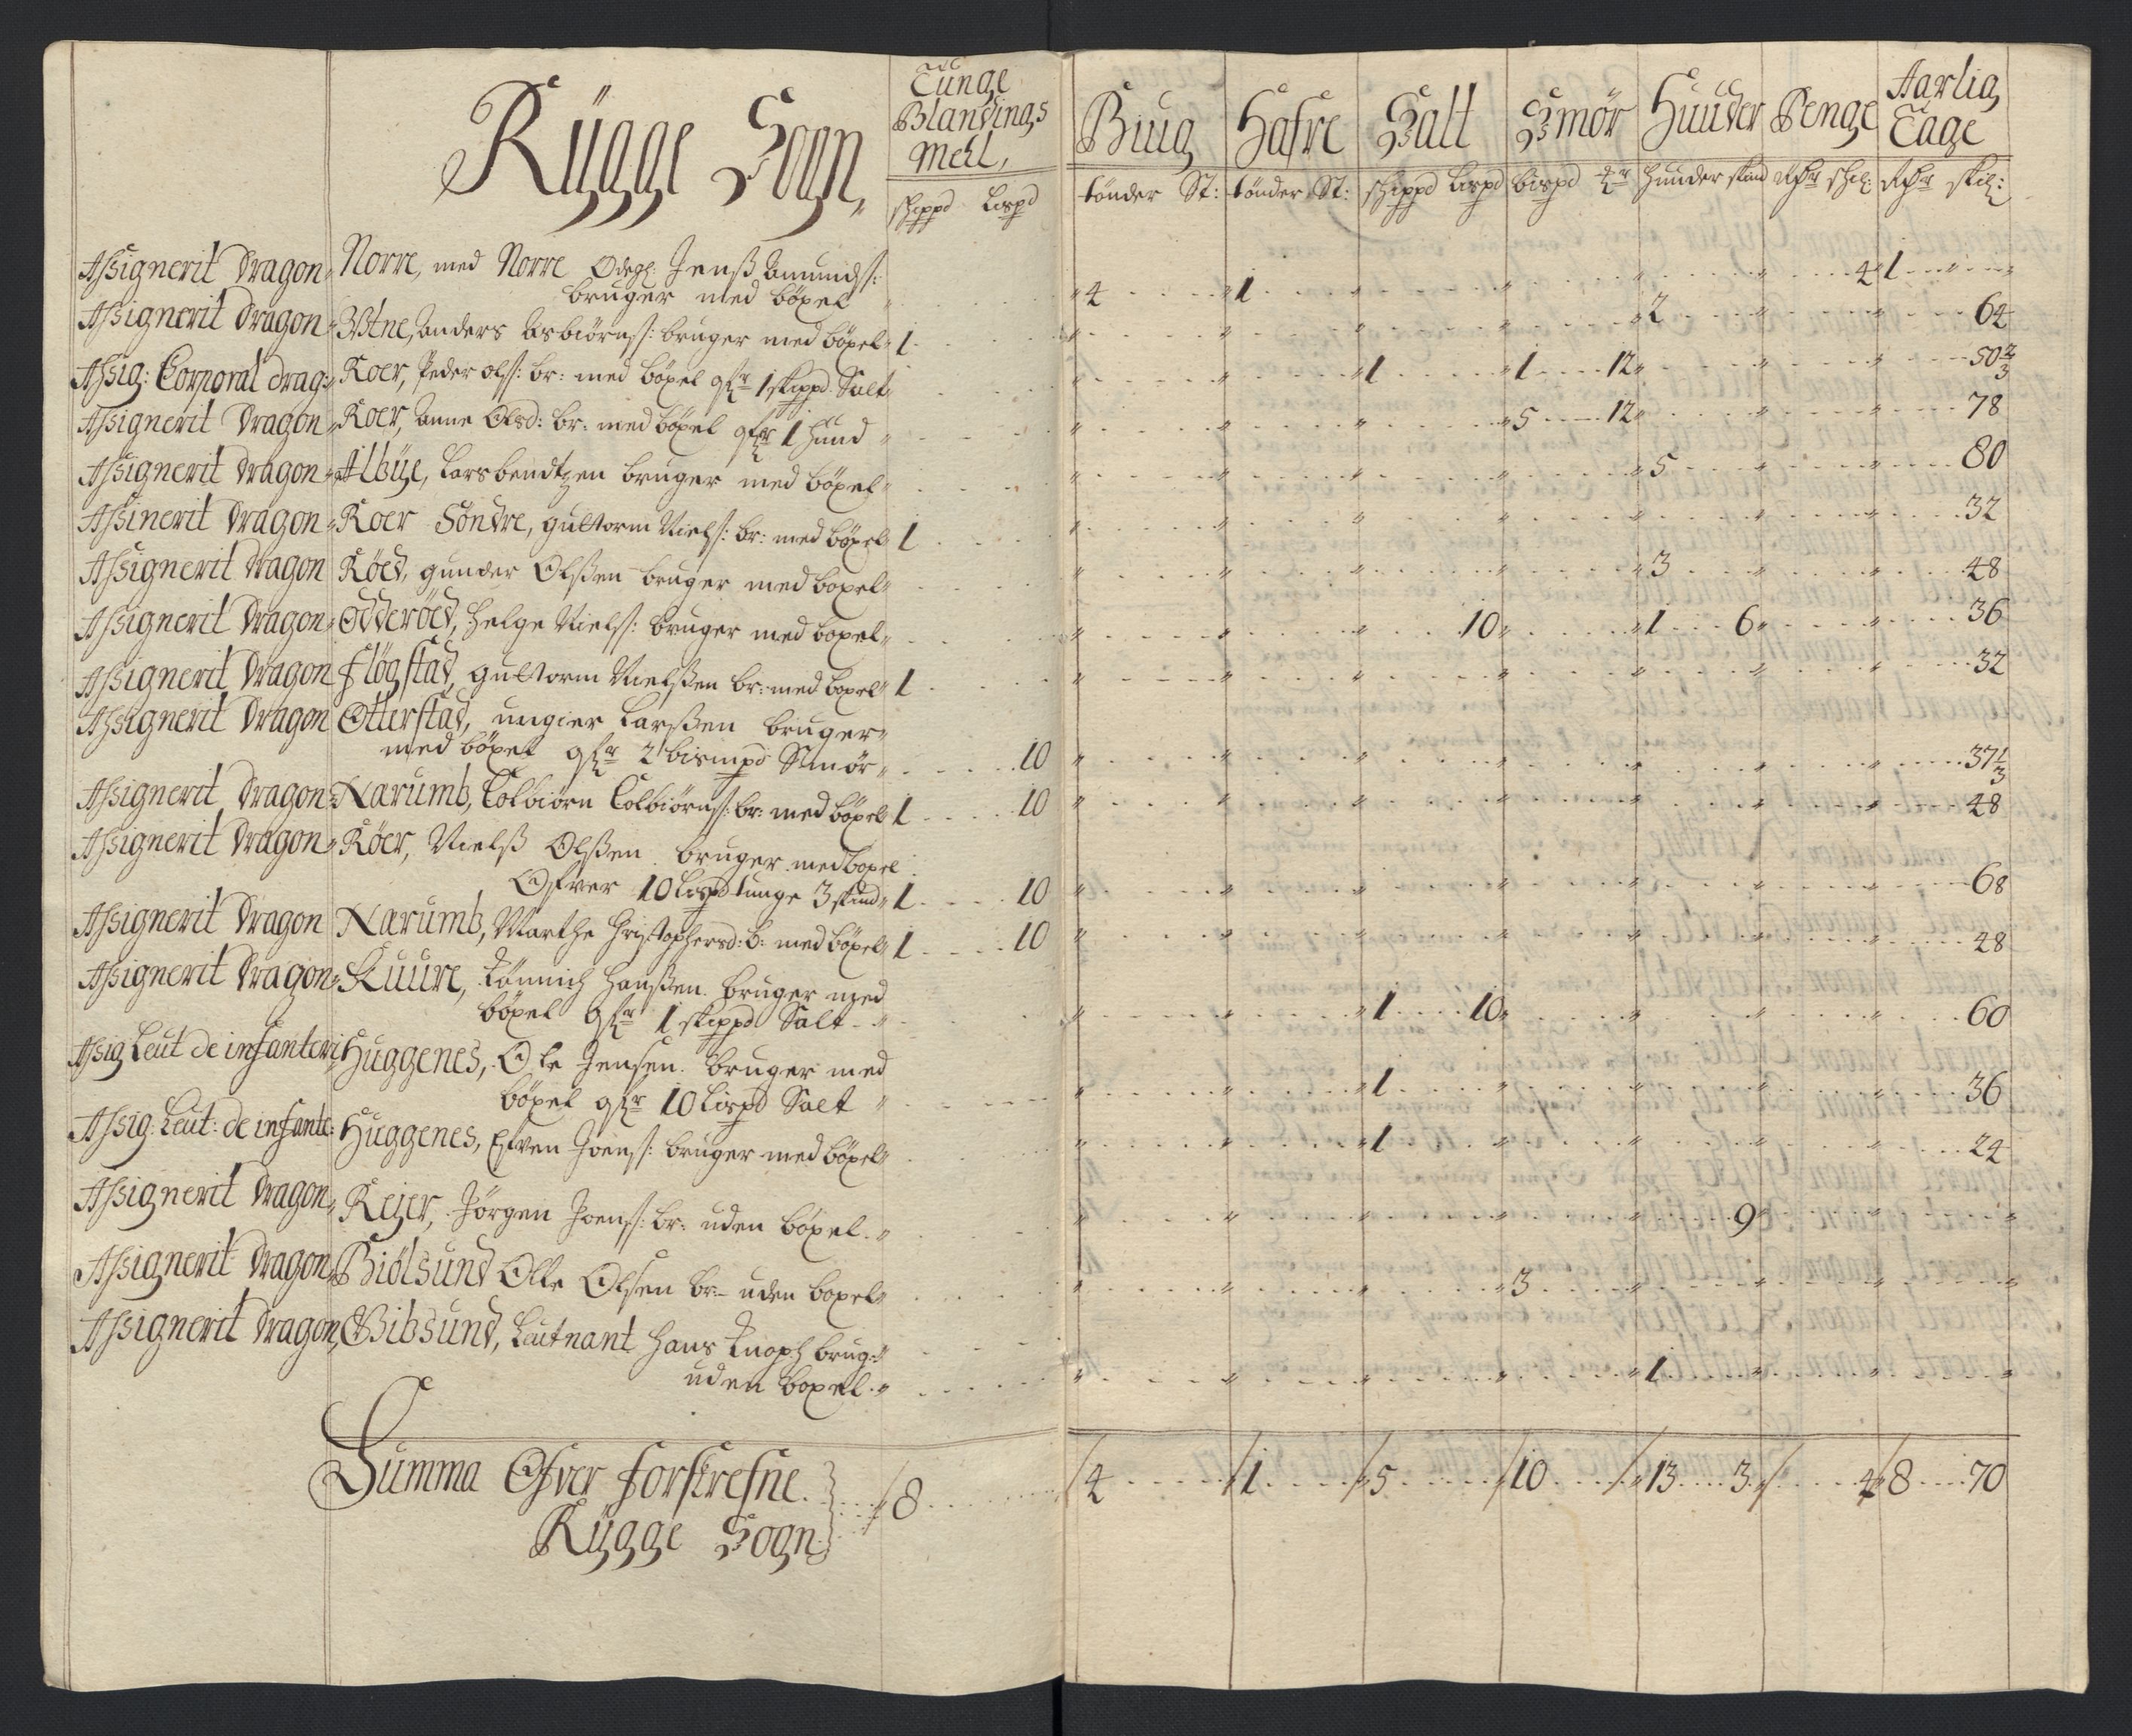 Rÿgge Sogn,
Tunge Blandings Mell,
Biug Hafre Salt Smör Huuder Penge Aarlig Tage
skippd Lispd tönder St: tönder St: skippd Lispd bispd hunder skind Rdr skil: Rdr skil:
Assignerit Dragon Norre, med Norre Ödegl: Jenß Amunds:
bruger med böxel 4 1 4 1
Assignerit Dragon Anders Asbiörns: bruger med böxel 1 2 64
Assig: Corporal drag: Roer, Peder ols: br: med böxel 1 skippd Salt 1 1 12 50 2/3
Assignerit Dragon Roer, Anne Olsd: br: med böxel 1 hund 5 12 78
Assignerit Dragon Albÿe, Lars bendtzen bruger med böxel 5 80
Assinerit Dragon Roer Söndre, gultorm Niels: br: med böxel 1 32
Assignerit Dragon Röed, gunder Olßen bruger med boxel 3 48
Assignerit Dragon Odderöed, Helge Niels: bruger med boxel 10 1 6 36
Assignerit Dragon flögstad, gultorm Nielßen br: med boxel 1 32
Assignerit Dragon Otterstad, ungier Larßen bruger
med böxel 2 bismpd Smör 10 37 1/3
Assignerit Dragon Narumb, Tolbiörn Tolbiörns: br: med böxel 1 10 48
Assignerit Dragon Röer, Nielß Olßen bruger med boxel
Ofver 10 Lispd tunge 3 skind 1 10 68
Assignerit Dragon Narumb, Marthe Christophersd: b: med böxel 1 10 48
Assignerit Dragon Kuure, Tönnich Hanßen bruger med
böxel 1 skippd Salt 1 10 60
Assig Leut de infanteri Huggenes, Ole Jensen bruger med
böxel 10 Lispd Salt 1 36
Assig: Leut: de infante: Huggenes, Efven Joens: bruger med böxel 1 24
Assignerit Dragon Reÿer, Jörgen Joens: br: uden böxel 9
Assignerit Dragon Biölsund Olle Olsen br: uden boxel 3
Assignerit Dragon Gibsund, Leutnant Hans Knoph brug:
uden boxel 1
Summa Ofver forskrefne
Rÿgge Sogn 8 4 1 5 10 13 3 4 8 70